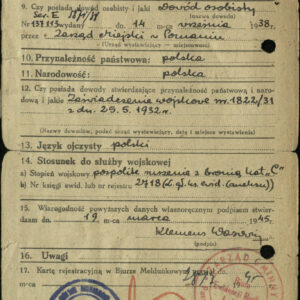 9. Czy posiada dowód osobisty i jaki Dowód osobisty
(nazwa dowodu)
Ser. E
№ wydany dn. 14 m-ca września 1938.
przez Zarząd Miejski w Poznaniu
(Urząd wystawiający — miejscowość)
10. Przynależność państwowa: polska
11. Narodowość: polska
12. Czy posiada dowody stwierdzające przynależność państwową i narodową
i jakie Zaświadczenie wojskowe nr. 1822/31
z dn. 25.5.1932 r.
(Nazwy dowodów, podać urząd wystawiający, datą i miejsce wystawienia)
13. Język ojczysty polski
14. Stosunek do służby wojskowej
a) Stopień wojskowy pospolite ruszenie z bronią kat. "C"
b) Nr księgi ewid. lub nr rejestru 2718
15. Wiarogodność powyższych danych własnoręcznym podpisem stwierdzam
dn. 19 m-ca marca 1945.
Klemens
(podpis)
16. Uwagi
17. Kartę rejestracyjną w Biurze Meldunkowym